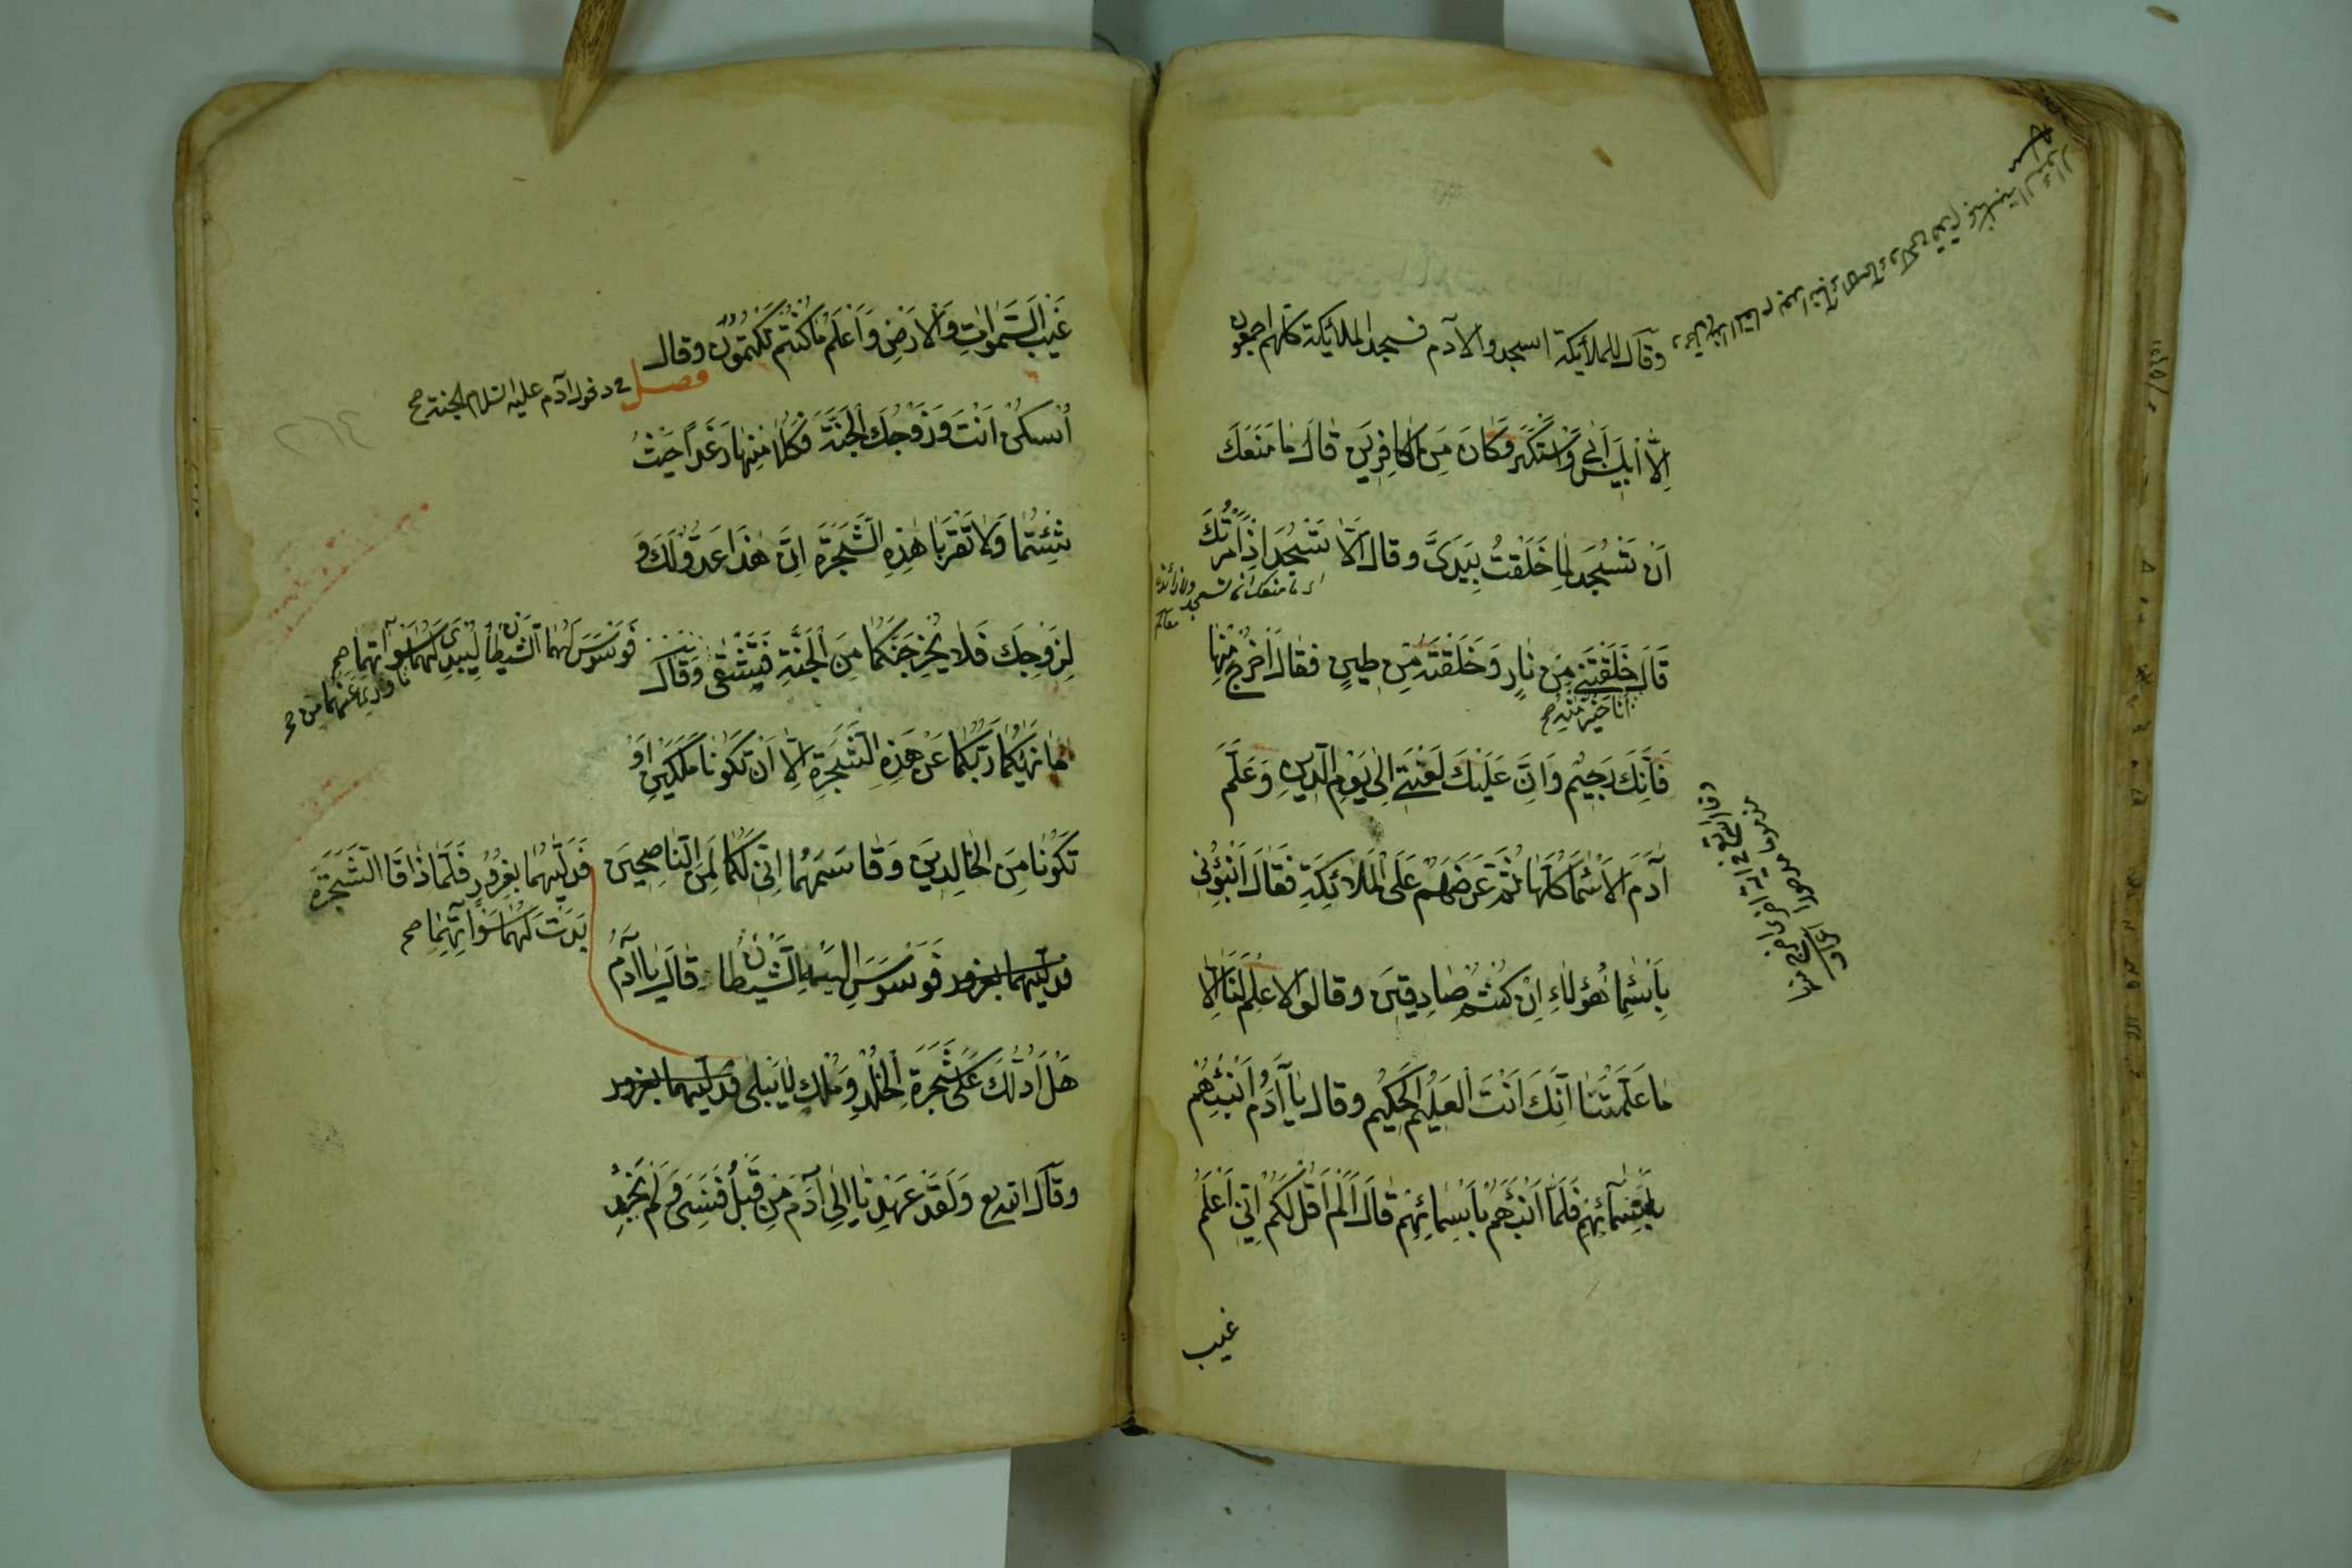 وقال للملائكة اسجدوا لآدم فسجد الملائكة كلهم اجمعون
اِلَّا اِبْلِيسَ اَبٰى وَاسْتَكْبَرَ وَكَانَ مِنَ الْكَافِرِينَ قَالَ مَا مَنَعَكَ
اَنْ تَسْجُدَ لِمَا خَلَقْتُ بِيَدَيَّ وقال اَلَّا تَسْجُدَ اِذْ اَمَرْتُكَ
اى ما منعك ان تسجد
قَالَ خَلَقْتَنِي مِنْ نَارٍ وَخَلَقْتَهُ مِنْ طِينٍ فقال اخْرُجْ مِنْهَا
اَنَا خَيْرٌ مِنْهُ صح
فَاِنَّكَ رَجِيمٌ وَاِنَّ عَلَيْكَ لَعْنَتِي اِلٰى يَوْمِ الدِّينِ وَعَلَّمَ
آدَمَ الْاَسْمَاءَ كُلَّهَا ثُمَّ عَرَضَهُمْ عَلَى الْمَلَائِكَةِ فَقَالَ اَنْبِئُونِي
بِاَسْمَاءِ هٰؤُلَاءِ اِنْ كُنْتُمْ صَادِقِينَ وقالوا لَا عِلْمَ لَنَا اِلَّا
مَا عَلَّمْتَنَا اِنَّكَ اَنْتَ الْعَلِيمُ الْحَكِيمُ وقال يَا آدَمُ اَنْبِئْهُمْ
بِاَسْمَائِهِمْ فَلَمَّا اَنْبَأَهُمْ بِاَسْمَائِهِمْ قَالَ اَلَمْ اَقُلْ لَكُمْ اِنِّي اَعْلَمُ
غيب
غَيْبَ السَّمٰوَاتِ وَالْاَرْضِ وَاَعْلَمُ مَا كُنْتُمْ تَكْتُمُونَ وقال
فصل في دخول آدم عليه السلام الجنة صح
اُسْكُنْ اَنْتَ وَزَوْجُكَ الْجَنَّةَ فَكُلَا مِنْهَا رَغَدًا حَيْثُ
شِئْتُمَا وَلَا تَقْرَبَا هٰذِهِ الشَّجَرَةَ اِنَّ هٰذَا عَدُوٌّ لَكَ وَ
لِزَوْجِكَ فَلَا يُخْرِجَنَّكُمَا مِنَ الْجَنَّةِ فَتَشْقٰى وَقَالَ
فَوَسْوَسَ لَهُمَا الشَّيْطَانُ لِيُبْدِيَ لَهُمَا سَوْآتِهِمَا صح
مَا وُرِيَ عَنْهُمَا مِنْ صح
مَا نَهٰيكُمَا رَبُّكُمَا عَنْ هٰذِهِ الشَّجَرَةِ اِلَّا اَنْ تَكُونَا مَلَكَيْنِ اَوْ
تَكُونَا مِنَ الْخَالِدِينَ وَقَاسَمَهُمَا اِنِّي لَكُمَا لَمِنَ النَّاصِحِينَ
فَدَلّٰيهُمَا بِغُرُورٍ فَلَمَّا ذَاقَا الشَّجَرَةَ
بَدَتْ لَهُمَا سَوْآتُهُمَا صح
فدليهما بغرور فَوَسْوَسَ اِلَيْهِ الشَّيْطَانُ قَالَ يَا آدَمُ
هَلْ اَدُلُّكَ عَلٰى شَجَرَةِ الْخُلْدِ وَمُلْكٍ لَا يَبْلٰى فدليهما بغرور
وقال الله تع وَلَقَدْ عَهِدْنَا اِلٰى آدَمَ مِنْ قَبْلُ فَنَسِيَ وَلَمْ نَجِدْ